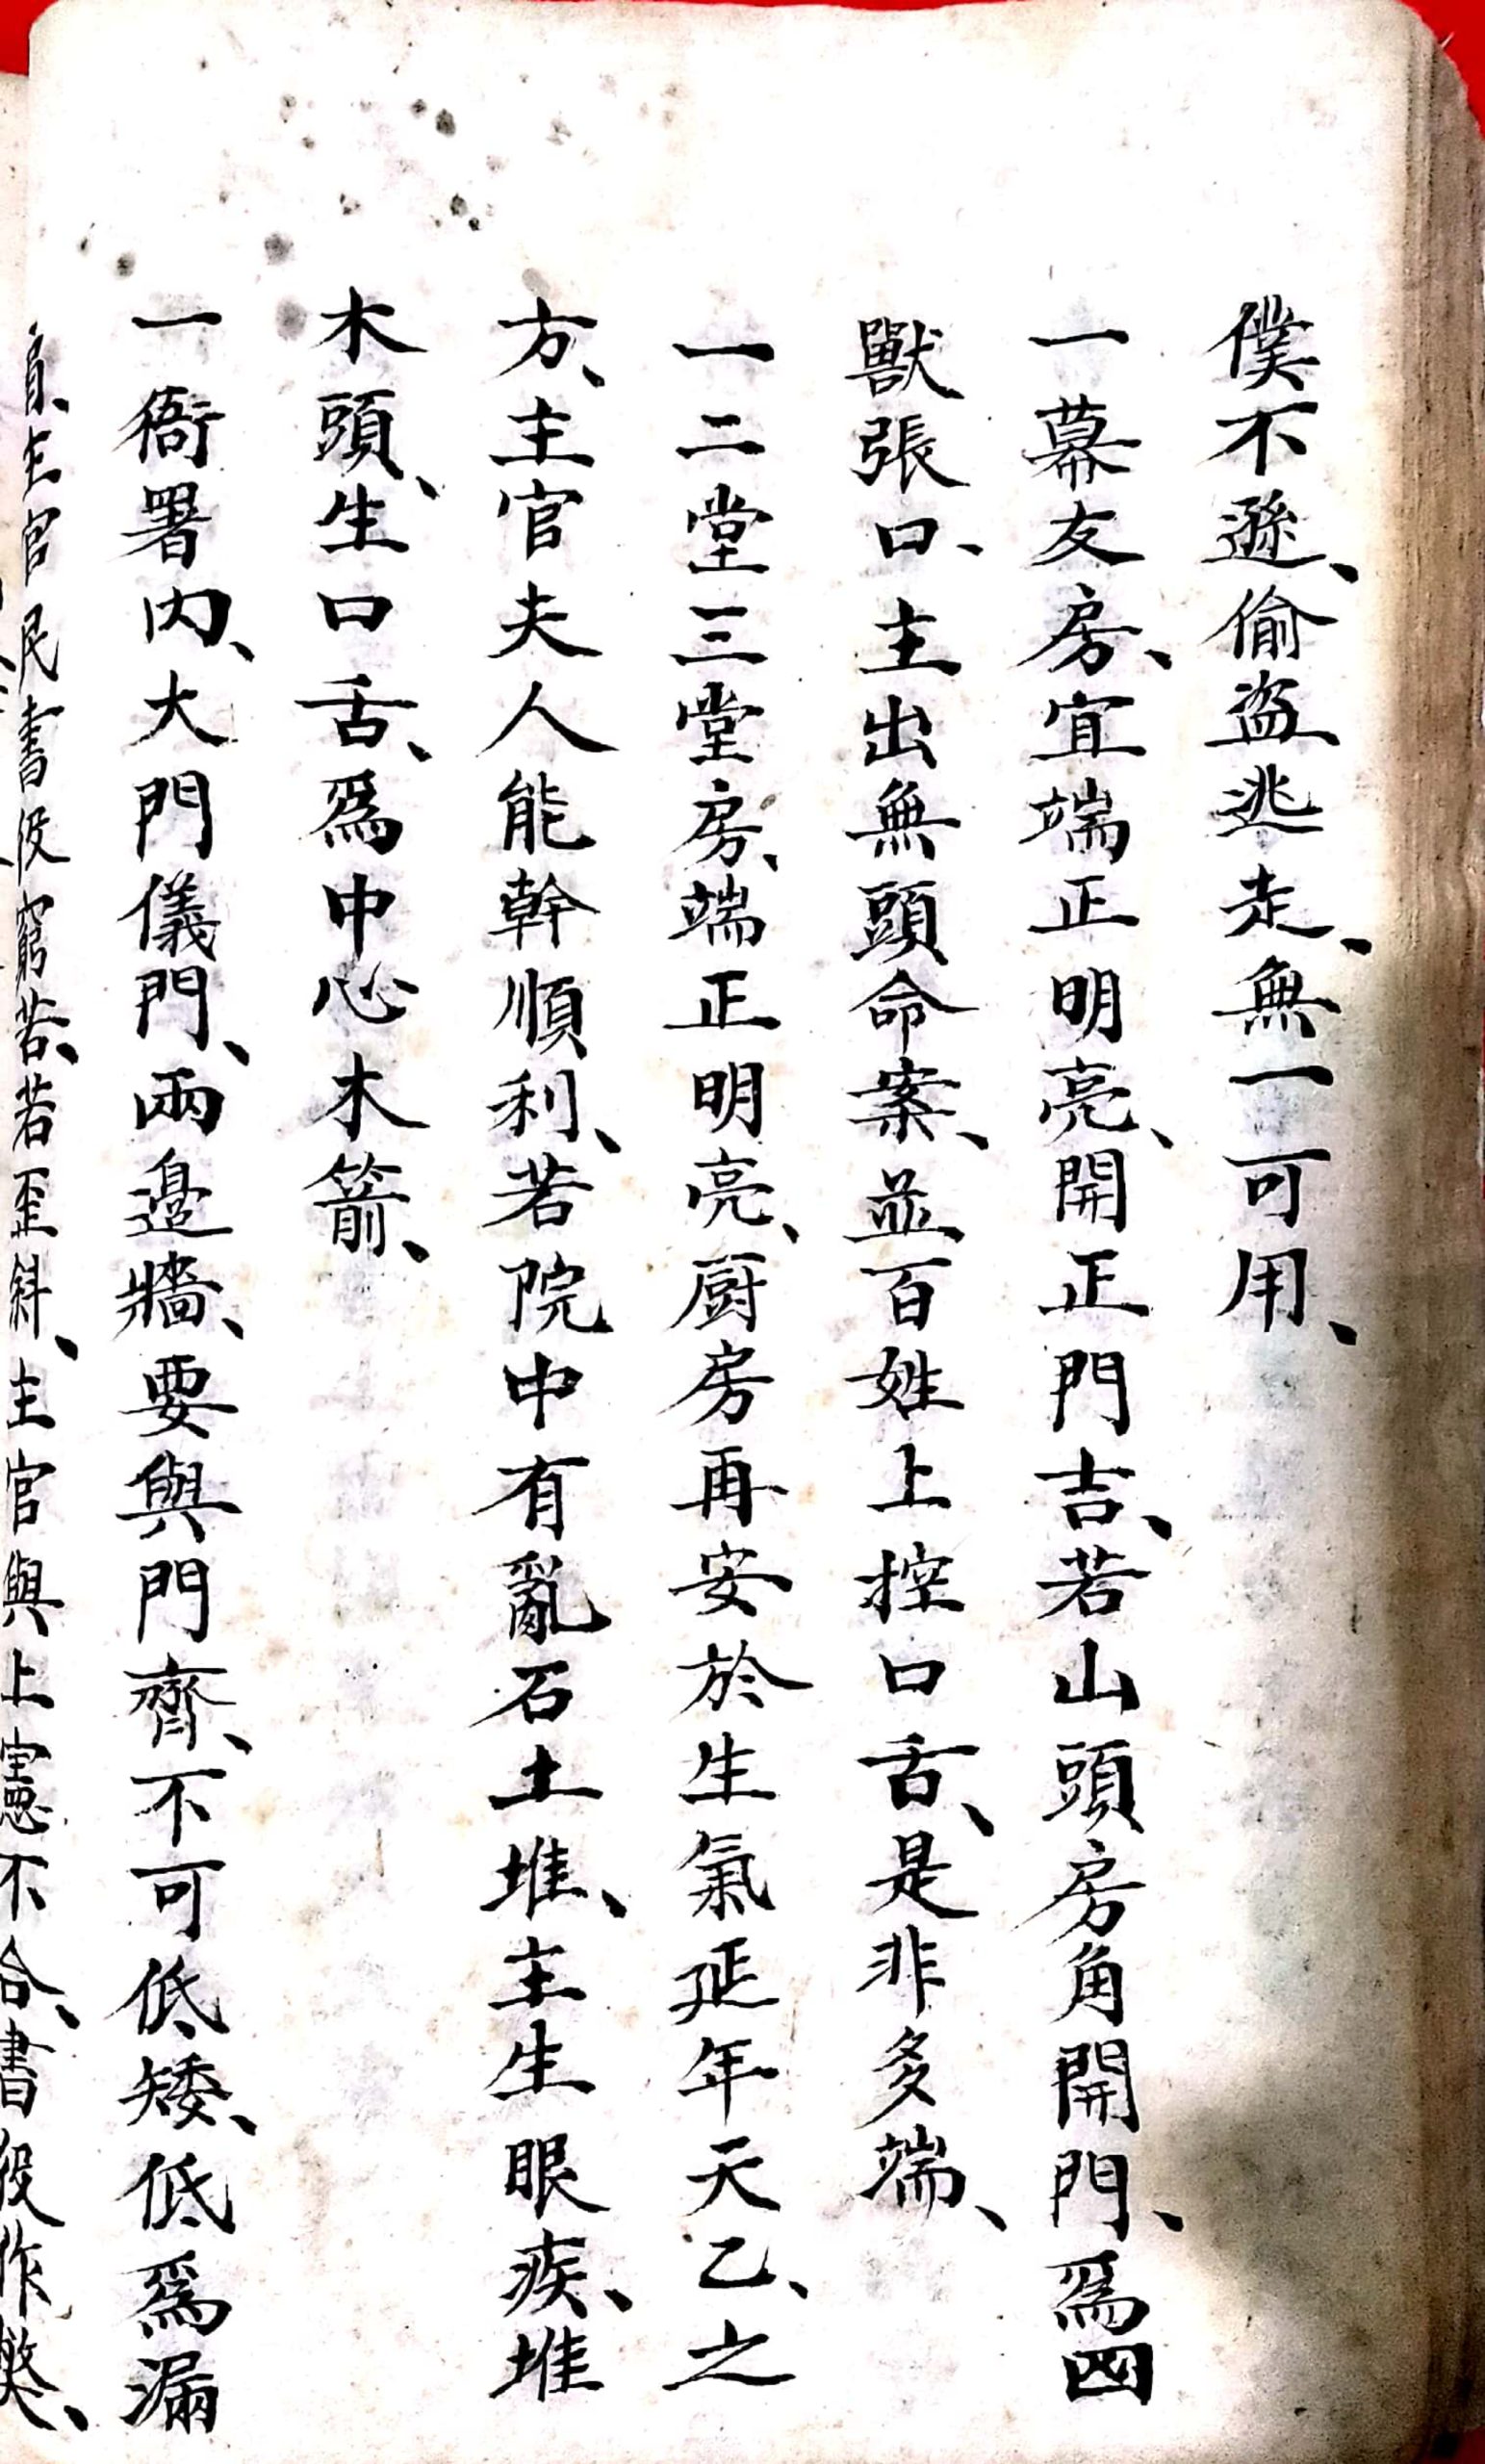 僕不遜、偷盗逃走、無一可用、
一幕友房、宜端正明亮、開正門吉、若山頭房角開門、爲四
獸張口、主出無頭命案、並百姓上控口舌、是非多端、
一二堂三堂房、端正明亮、厨房再安於生氣延年天乙、之
方、主官夫人能幹順利、若院中有亂石土堆、主生眼疾、堆
木頭、生口舌、爲中心木箭、
一衙署内、大門儀門、兩邊牆、要與門齊、不可低矮、低爲漏
肩、主官民書役窮苦、若歪斜、主官與上憲不合、書役作弊、